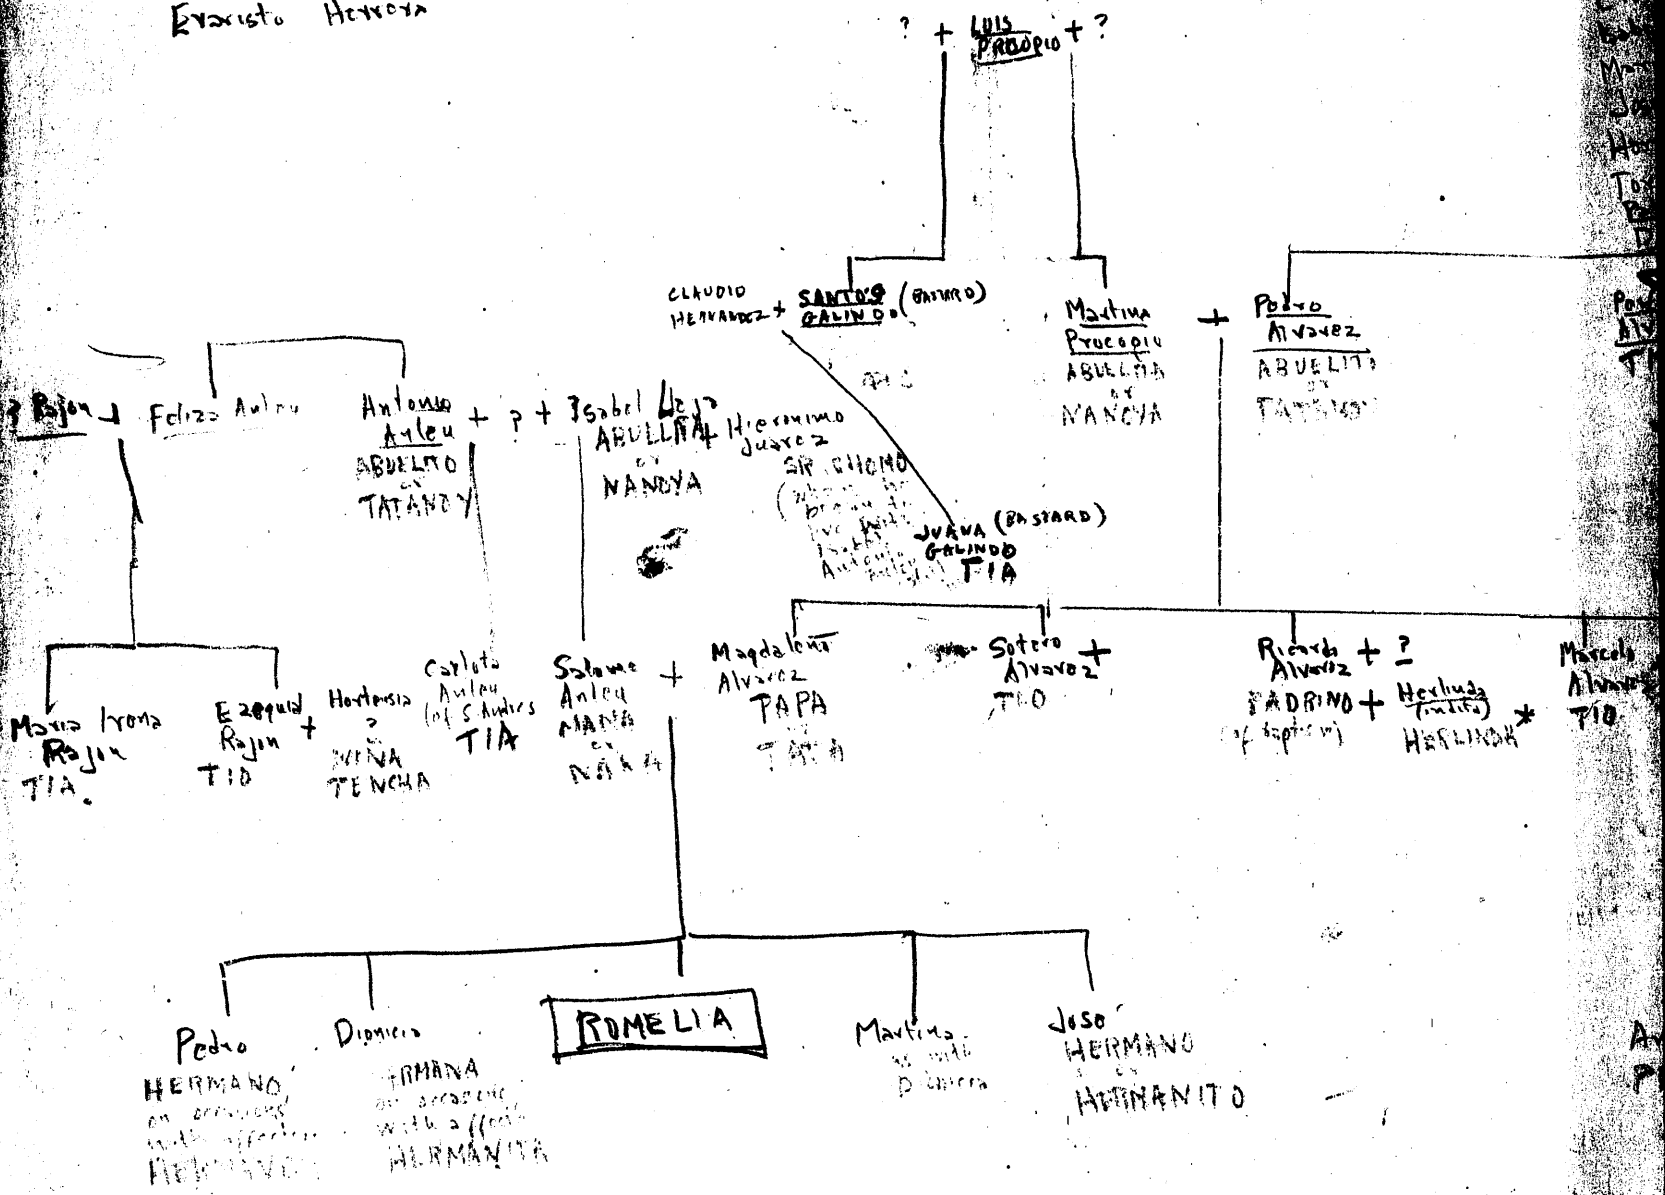 Evaristo Herrera
? + LUIS + ?
PROCOPIO
CLAUDIO
HERNANDEZ +
SANTOS (BASTARD)
GALINDO
Martina
Procopio
ABUELITA
or
NANOYA
+
Pedro
Alvarez
ABUELITO
or
TATANOY
? Rajon +
Feliza Anleu
Antonio
Anleu
ABUELITO
or
TATANOY
+ ? +
Isabel
ABUELITA
or
NANOYA
+ Hieronimo
Juarez
SR. CHOMO
JUANA (BASTARD)
GALINDO
TIA
Maria Irena
Rajon
TIA.
Ezequiel
Rajon
TIO
+
Hortensia
?
or
NIÑA
TENCHA
Carlota
Anleu
(of S. Andres
TIA
Salome
Anleu
MAMA
or
NANA
+
Magdaleno
Alvarez
PAPA
or
TATA
Sotero +
Alvarez
TIO
Ricardo + ?
Alvarez
PADRINO +
(of baptism)
Herlinda
(indita) *
HERLINDA
Marcelo
Alvarez
TIO
Pedro
HERMANO,
on occasions
with affection
HERMANO
Dionicia
HERMANA
on occasions,
with affection
HERMANITA
ROMELIA
Martina
as with
Dionicia
José
HERMANO
or
HERMANITO